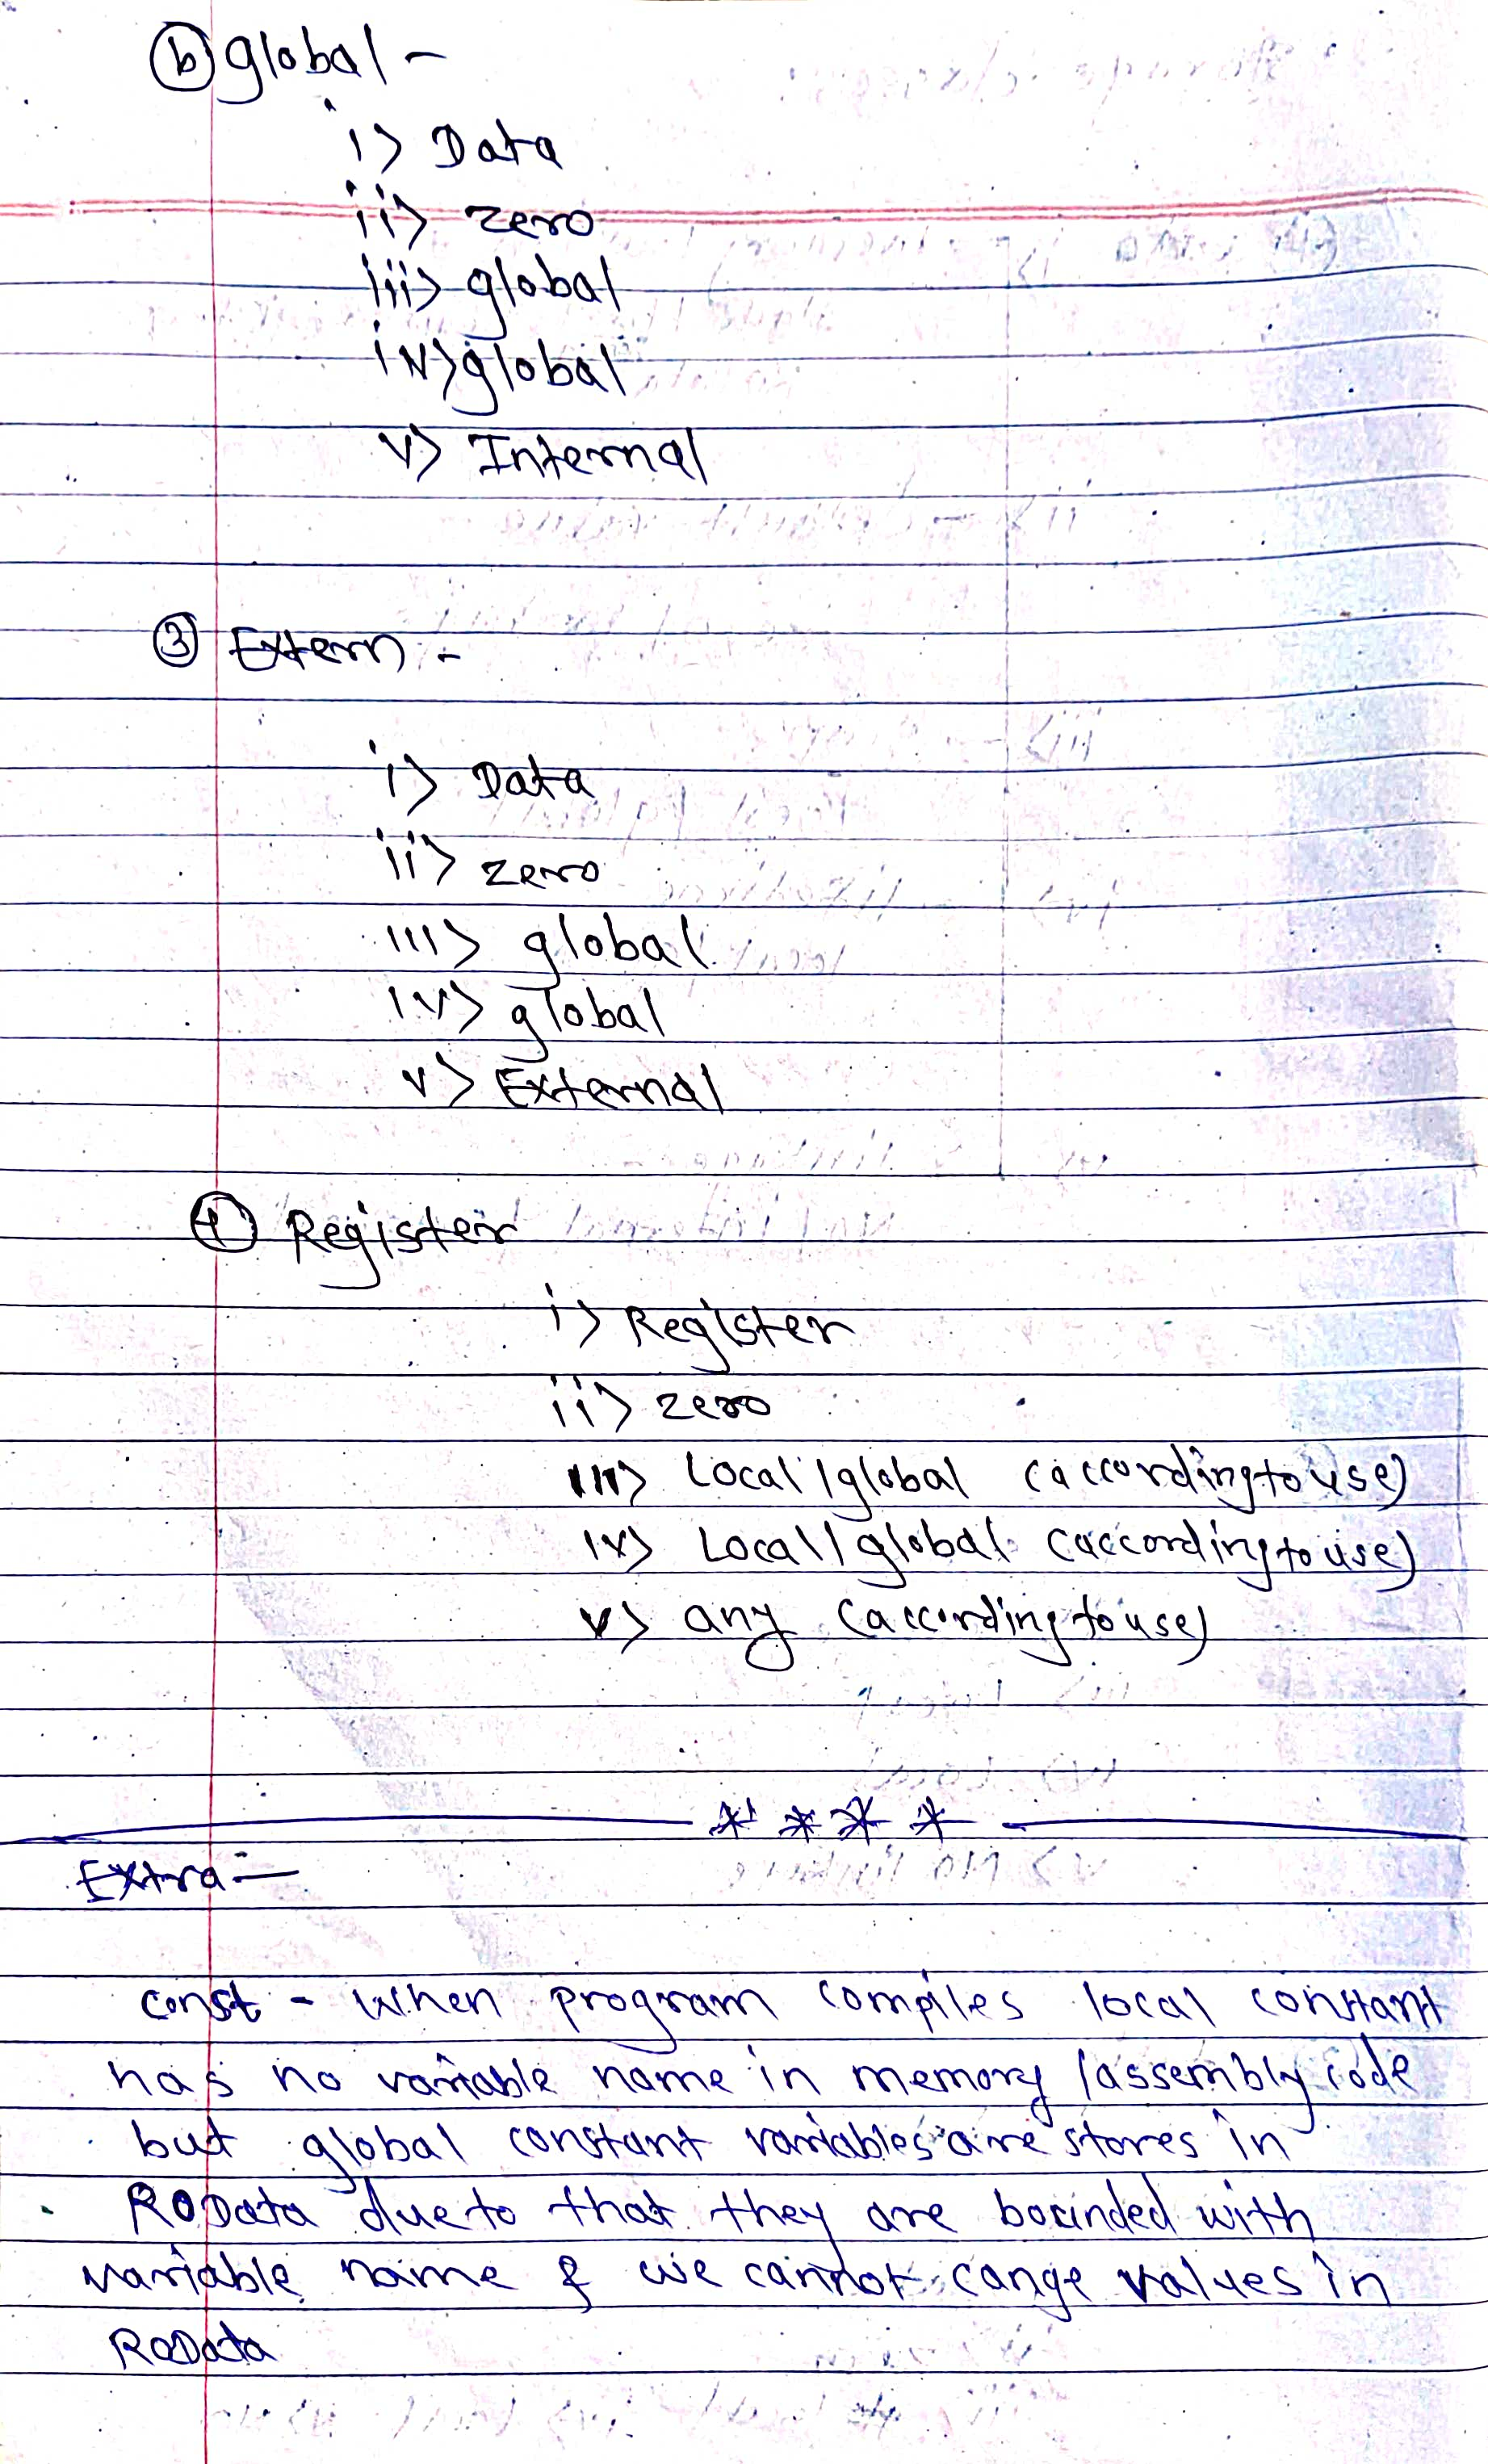 (b) global -
i> Data
ii> zero
iii> global
iv> global
v> Internal
③ Extern :-
i> Data
ii> zero
iii> global
iv> global
v> External
④ Register
i> Register
ii> zero
iii> Local/global (according to use)
iv> Local/global (according to use)
v> any (according to use)
* * * *
Extra :-
const - when program compiles local constant
has no variable name in memory /assembly code
but global constant variables are stores in
RODATA due to that they are bounded with
variable name & we cannot cange values in
RODATA